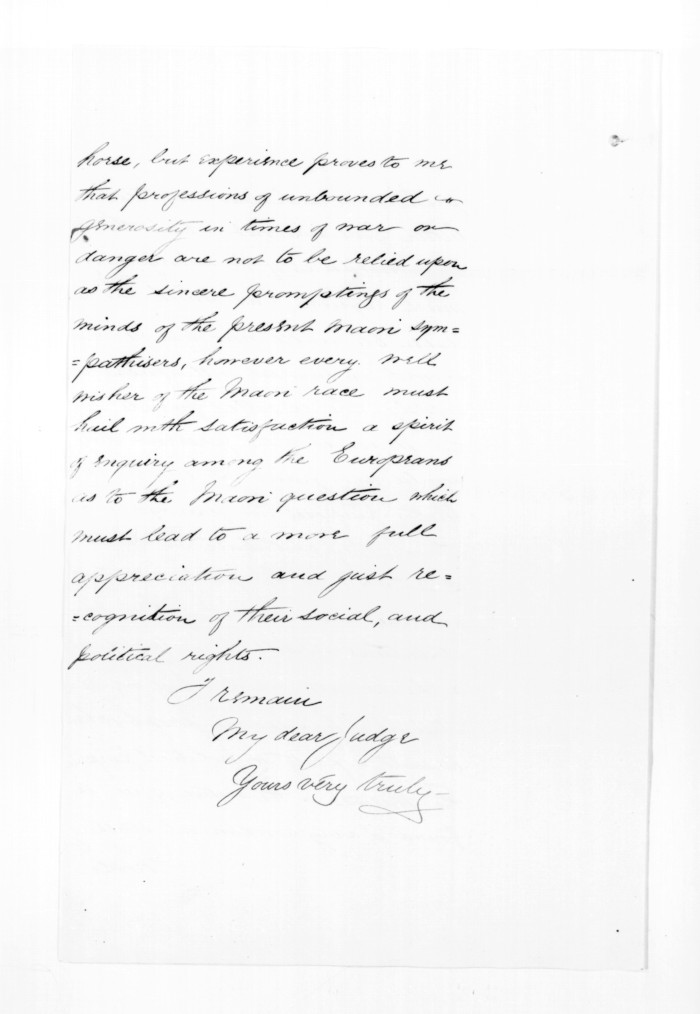 horse, but experience proves to me
that professions of unbounded
generosity in times of war or
danger are not to be relied upon
as the sincere promptings of the
minds of the present Maori sym=
=pathisers, however every well
wisher of the Maori race must
hail with satisfaction a spirit
of enquiry among the Europeans
as to the Maori question which
must lead to a more full
appreciation and just re=
=cognition of their social, and
political rights.
I remain
My dear Judge
Yours very truly